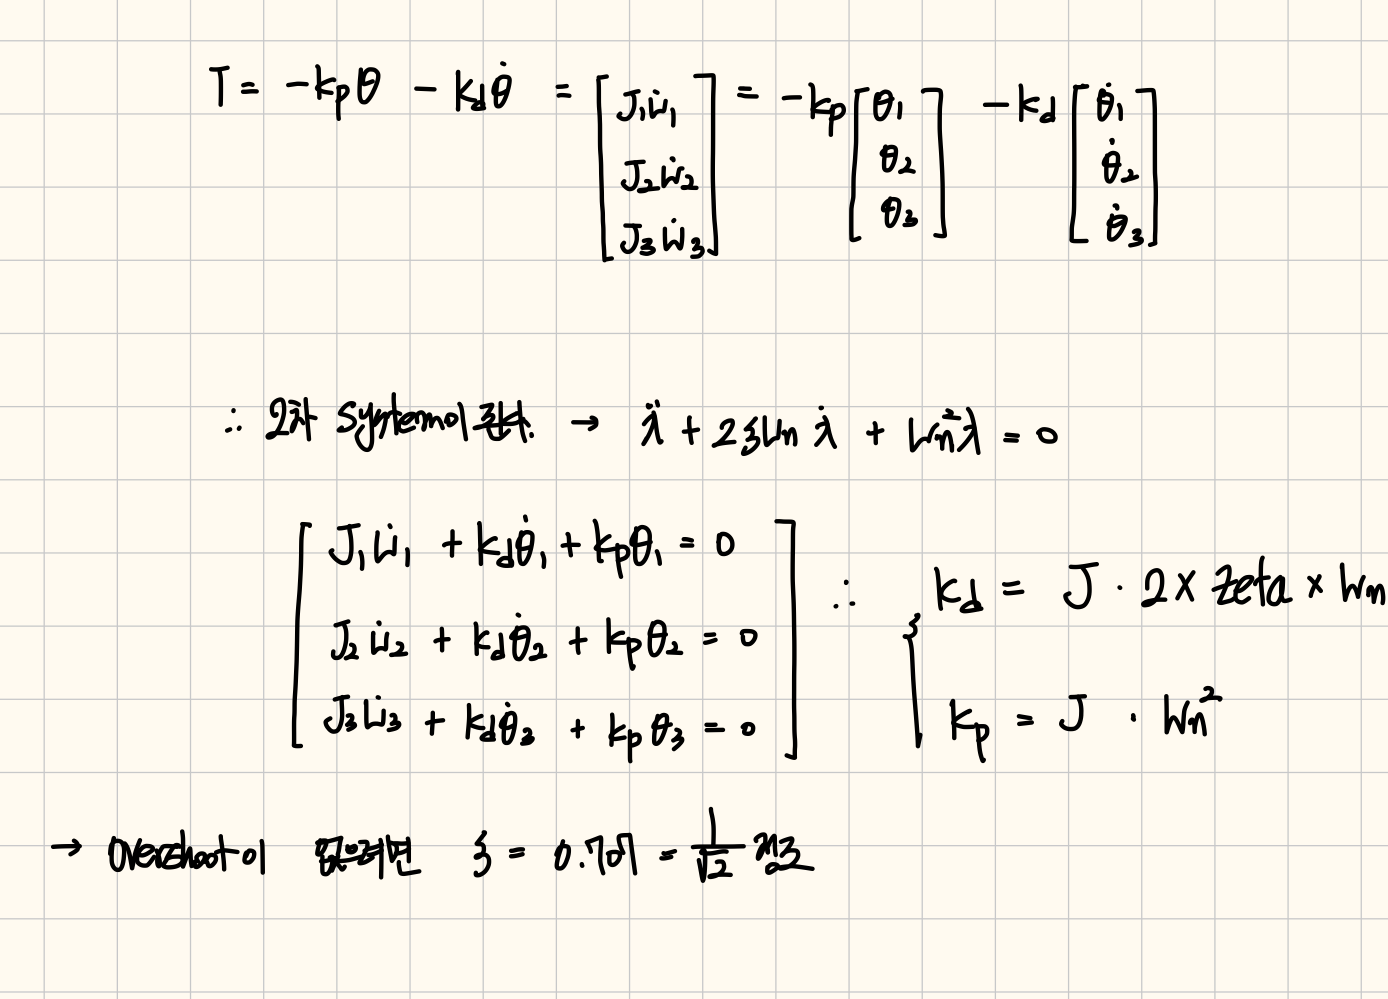 T = -kpθ - kdθ̇ = [J₁ẇ₁ J₂ẇ₂ J₃ẇ₃] = -kp[θ₁ θ₂ θ₃] - kd[θ̇₁ θ̇₂ θ̇₃]
∴ 2차 System이 → λ̈ + 2ζWn λ̇ + Wn²λ = 0
J₁ẇ₁ + kdθ̇₁ + kpθ₁ = 0
J₂ẇ₂ + kdθ̇₂ + kpθ₂ = 0
J₃ẇ₃ + kdθ̇₃ + kpθ₃ = 0
∴ kd = J · 2 × zeta × Wn
kp = J · Wn²
→ overshoot이 ζ = 0.707 = 1/√2